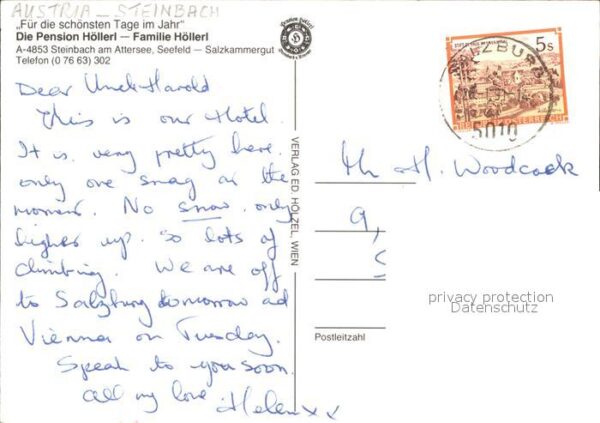 AUSTRIA — STEINBACH
„Für die schönsten Tage im Jahr"
Die Pension Höllerl — Familie Höllerl
A-4853 Steinbach am Attersee, Seefeld — Salzkammergut
Telefon (0 76 63) 302
Dear Uncle Harold
This is our Hotel.
It is very pretty here
only one snag at the
moment. No snow, only
higher up. So lots of
climbing. We are off
to Salzburg tomorrow ad
Vienna on Tuesday.
Speak to you soon.
All my love Helen xx
VERLAG ED. HÖLZEL, WIEN
5s
SALZBURG
5010
Mr H. Woodcock
9,
privacy protection
Datenschutz
Postleitzahl